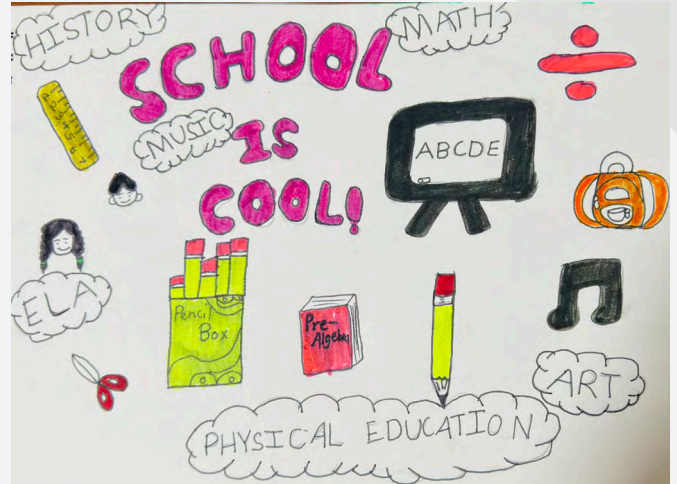 HISTORY
MATH
SCHOOL
MUSIC
IS
ABCDE
COOL!
ELA
Pencil
Box
Pre-
Algebra
ART
PHYSICAL EDUCATION